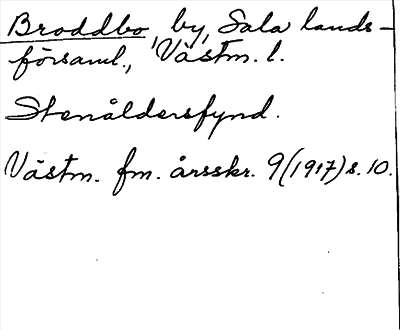 Broddbo, by, Sala lands-
församl., Västm. l.
Stenåldersfynd.
Västm. fm. årsskr. 9(1917) s. 10.